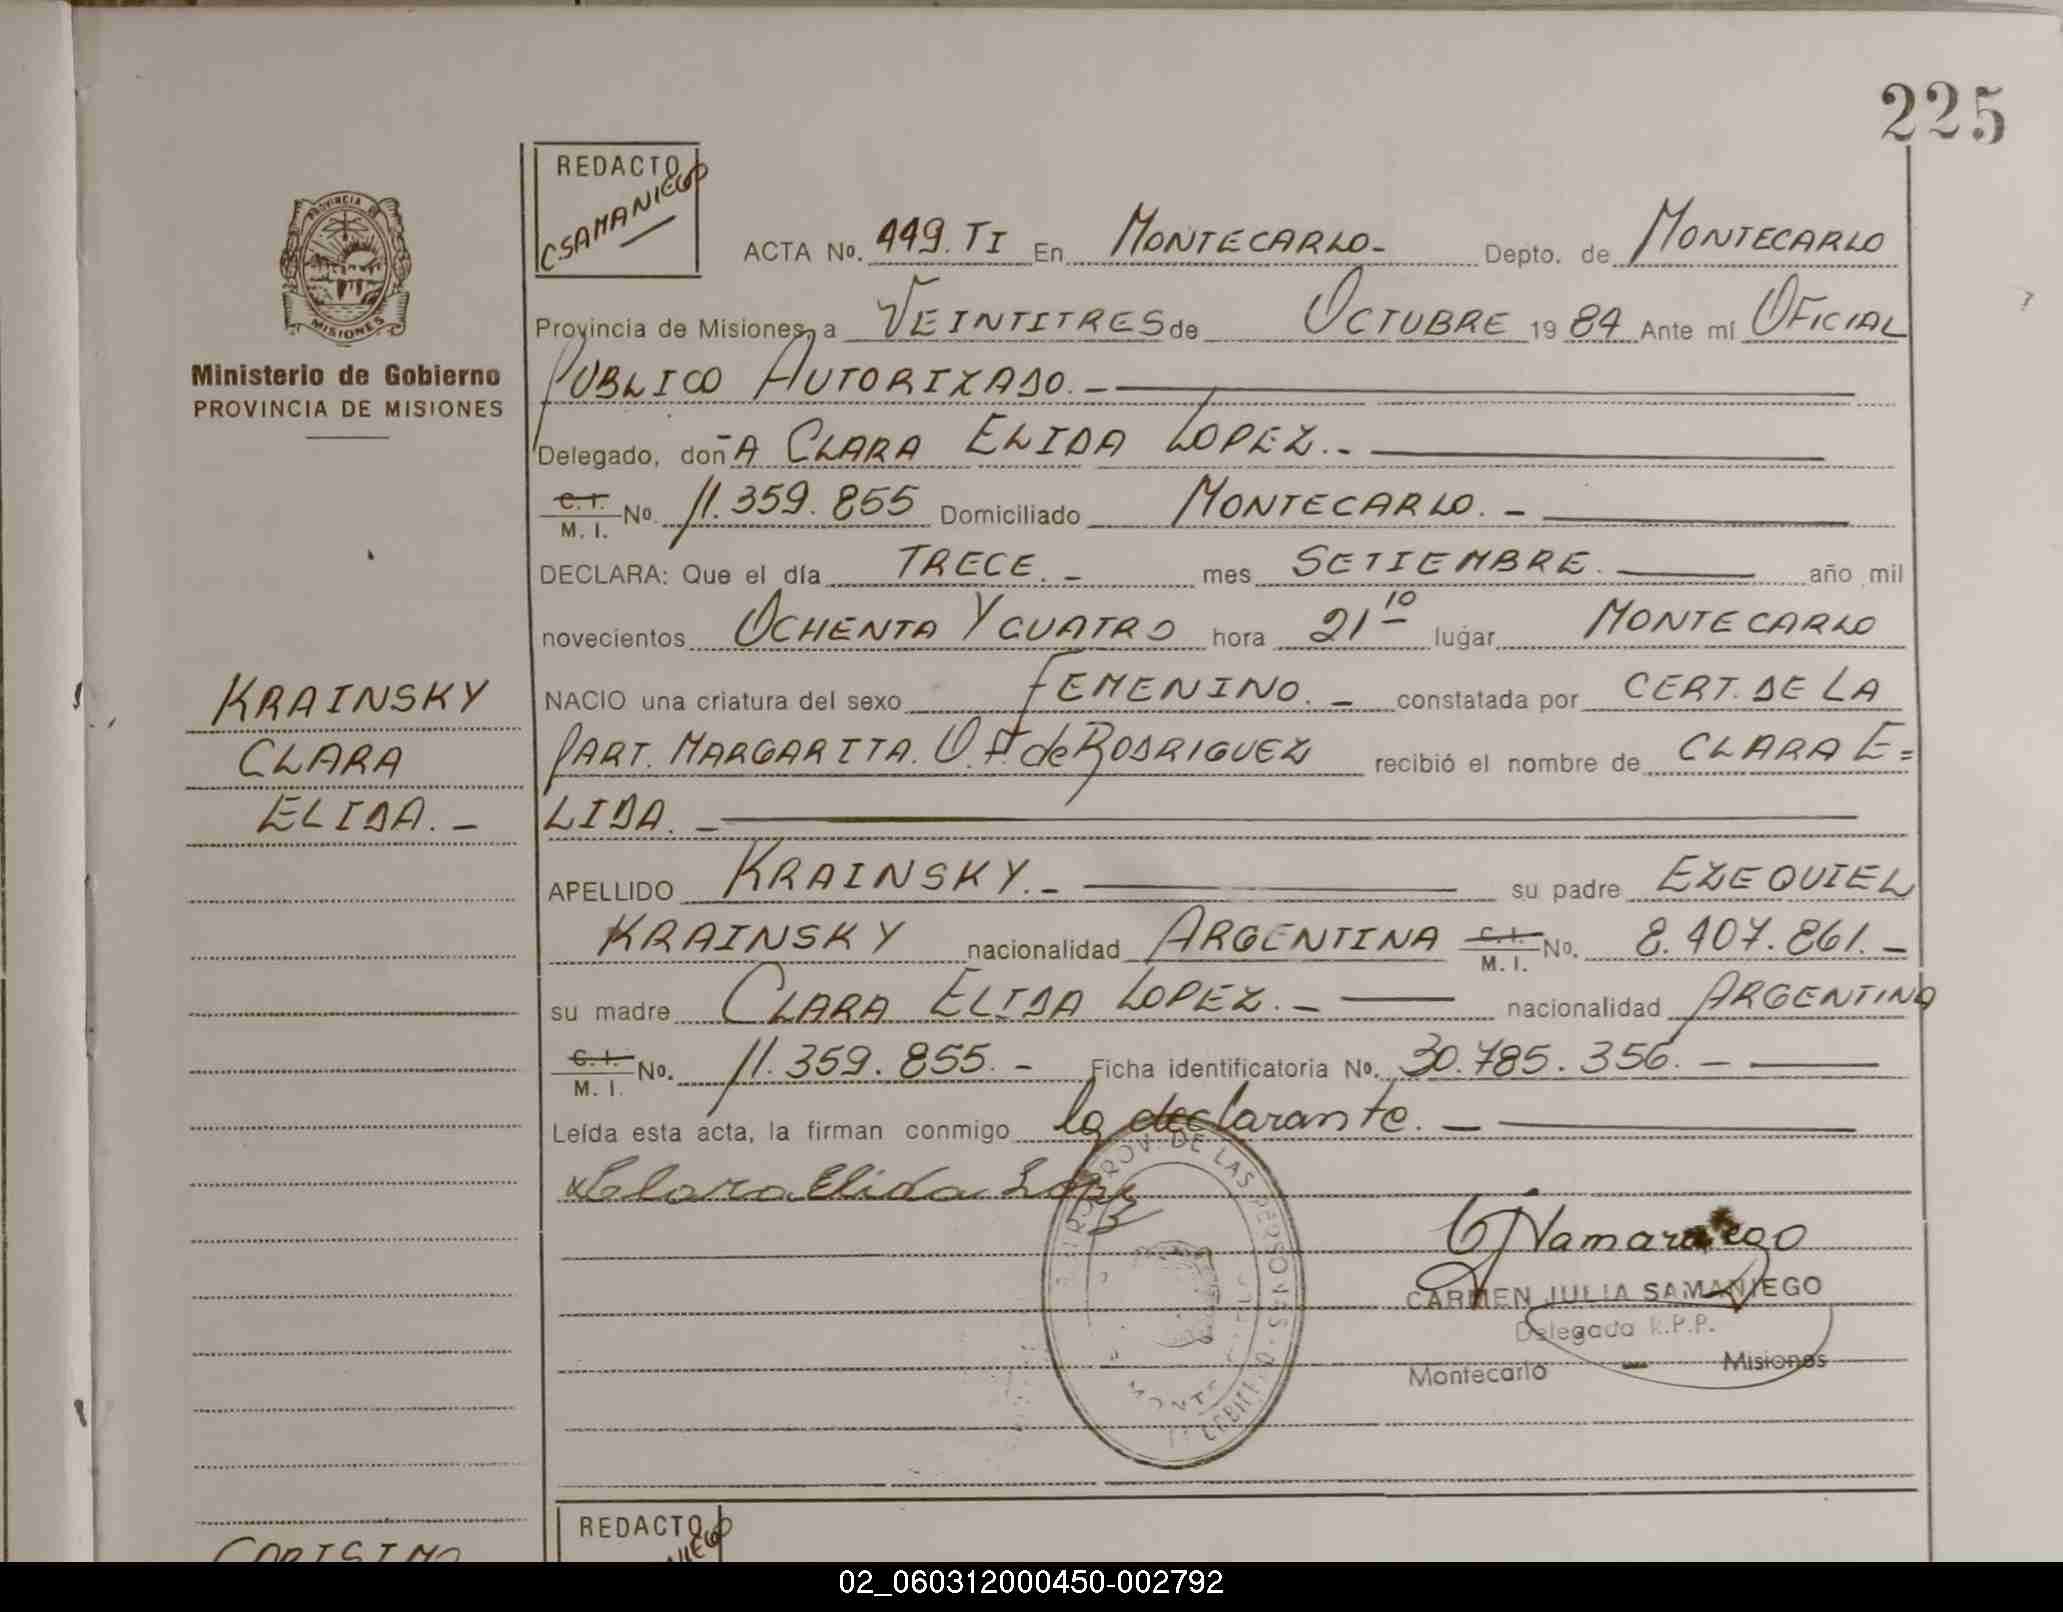 225
REDACTO
CSAMANIEGO
PROVINCIA DE
MISIONES
Ministerio de Gobierno
PROVINCIA DE MISIONES
ACTA No. 449. TI En MONTECARLO- Depto. de MONTECARLO
Provincia de Misiones, a VEINTITRES de OCTUBRE 19 84 Ante mí OFICIAL
PUBLICO AUTORIZADO. -
Delegado, doñA CLARA ELIDA LOPEZ. -
C. I.
M. I. No. 11.359.855 Domiciliado MONTECARLO. -
DECLARA: Que el día TRECE. - mes SETIEMBRE. año mil
novecientos OCHENTA Y CUATRO hora 21 10 lugar MONTECARLO
NACIO una criatura del sexo FEMENINO. - constatada por CERT. DE LA
PART. MARGARITA. O. A. de RODRIGUEZ recibió el nombre de CLARA E=
LIDA. -
KRAINSKY
CLARA
ELIDA. -
APELLIDO KRAINSKY. - su padre EZEQUIEL
KRAINSKY nacionalidad ARGENTINA C. I.
M. I. No. 8.407.861. -
su madre CLARA ELIDA LOPEZ. - nacionalidad ARGENTINA
C. I.
M. I. No. 11.359.855. - Ficha identificatoria No. 30.785.356. -
Leída esta acta, la firman conmigo la declarante. -
x Clara Elida Lopez
PROV. DE LAS PERSONAS
CJSamaniego
CARMEN JULIA SAMANIEGO
Delegada R.P.P.
Montecarlo - Misiones
REDACTO
02_060312000450-002792